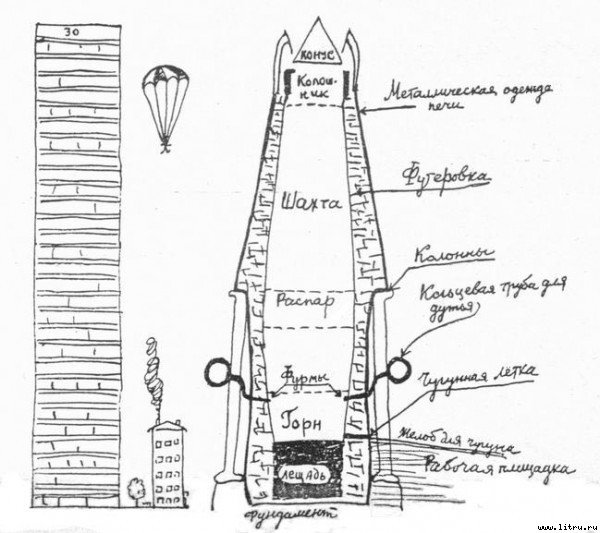 30
КОНУС
Колош-
ник
Металлическая одежда
печи
Футеровка
Шахта
Колонны
Распар
Кольцевая труба для
дутья
Фурмы
Чугунная летка
Горн
Желоб для чугуна
Рабочая площадка
ЛЕЩАДЬ
Фундамент
www.litru.ru